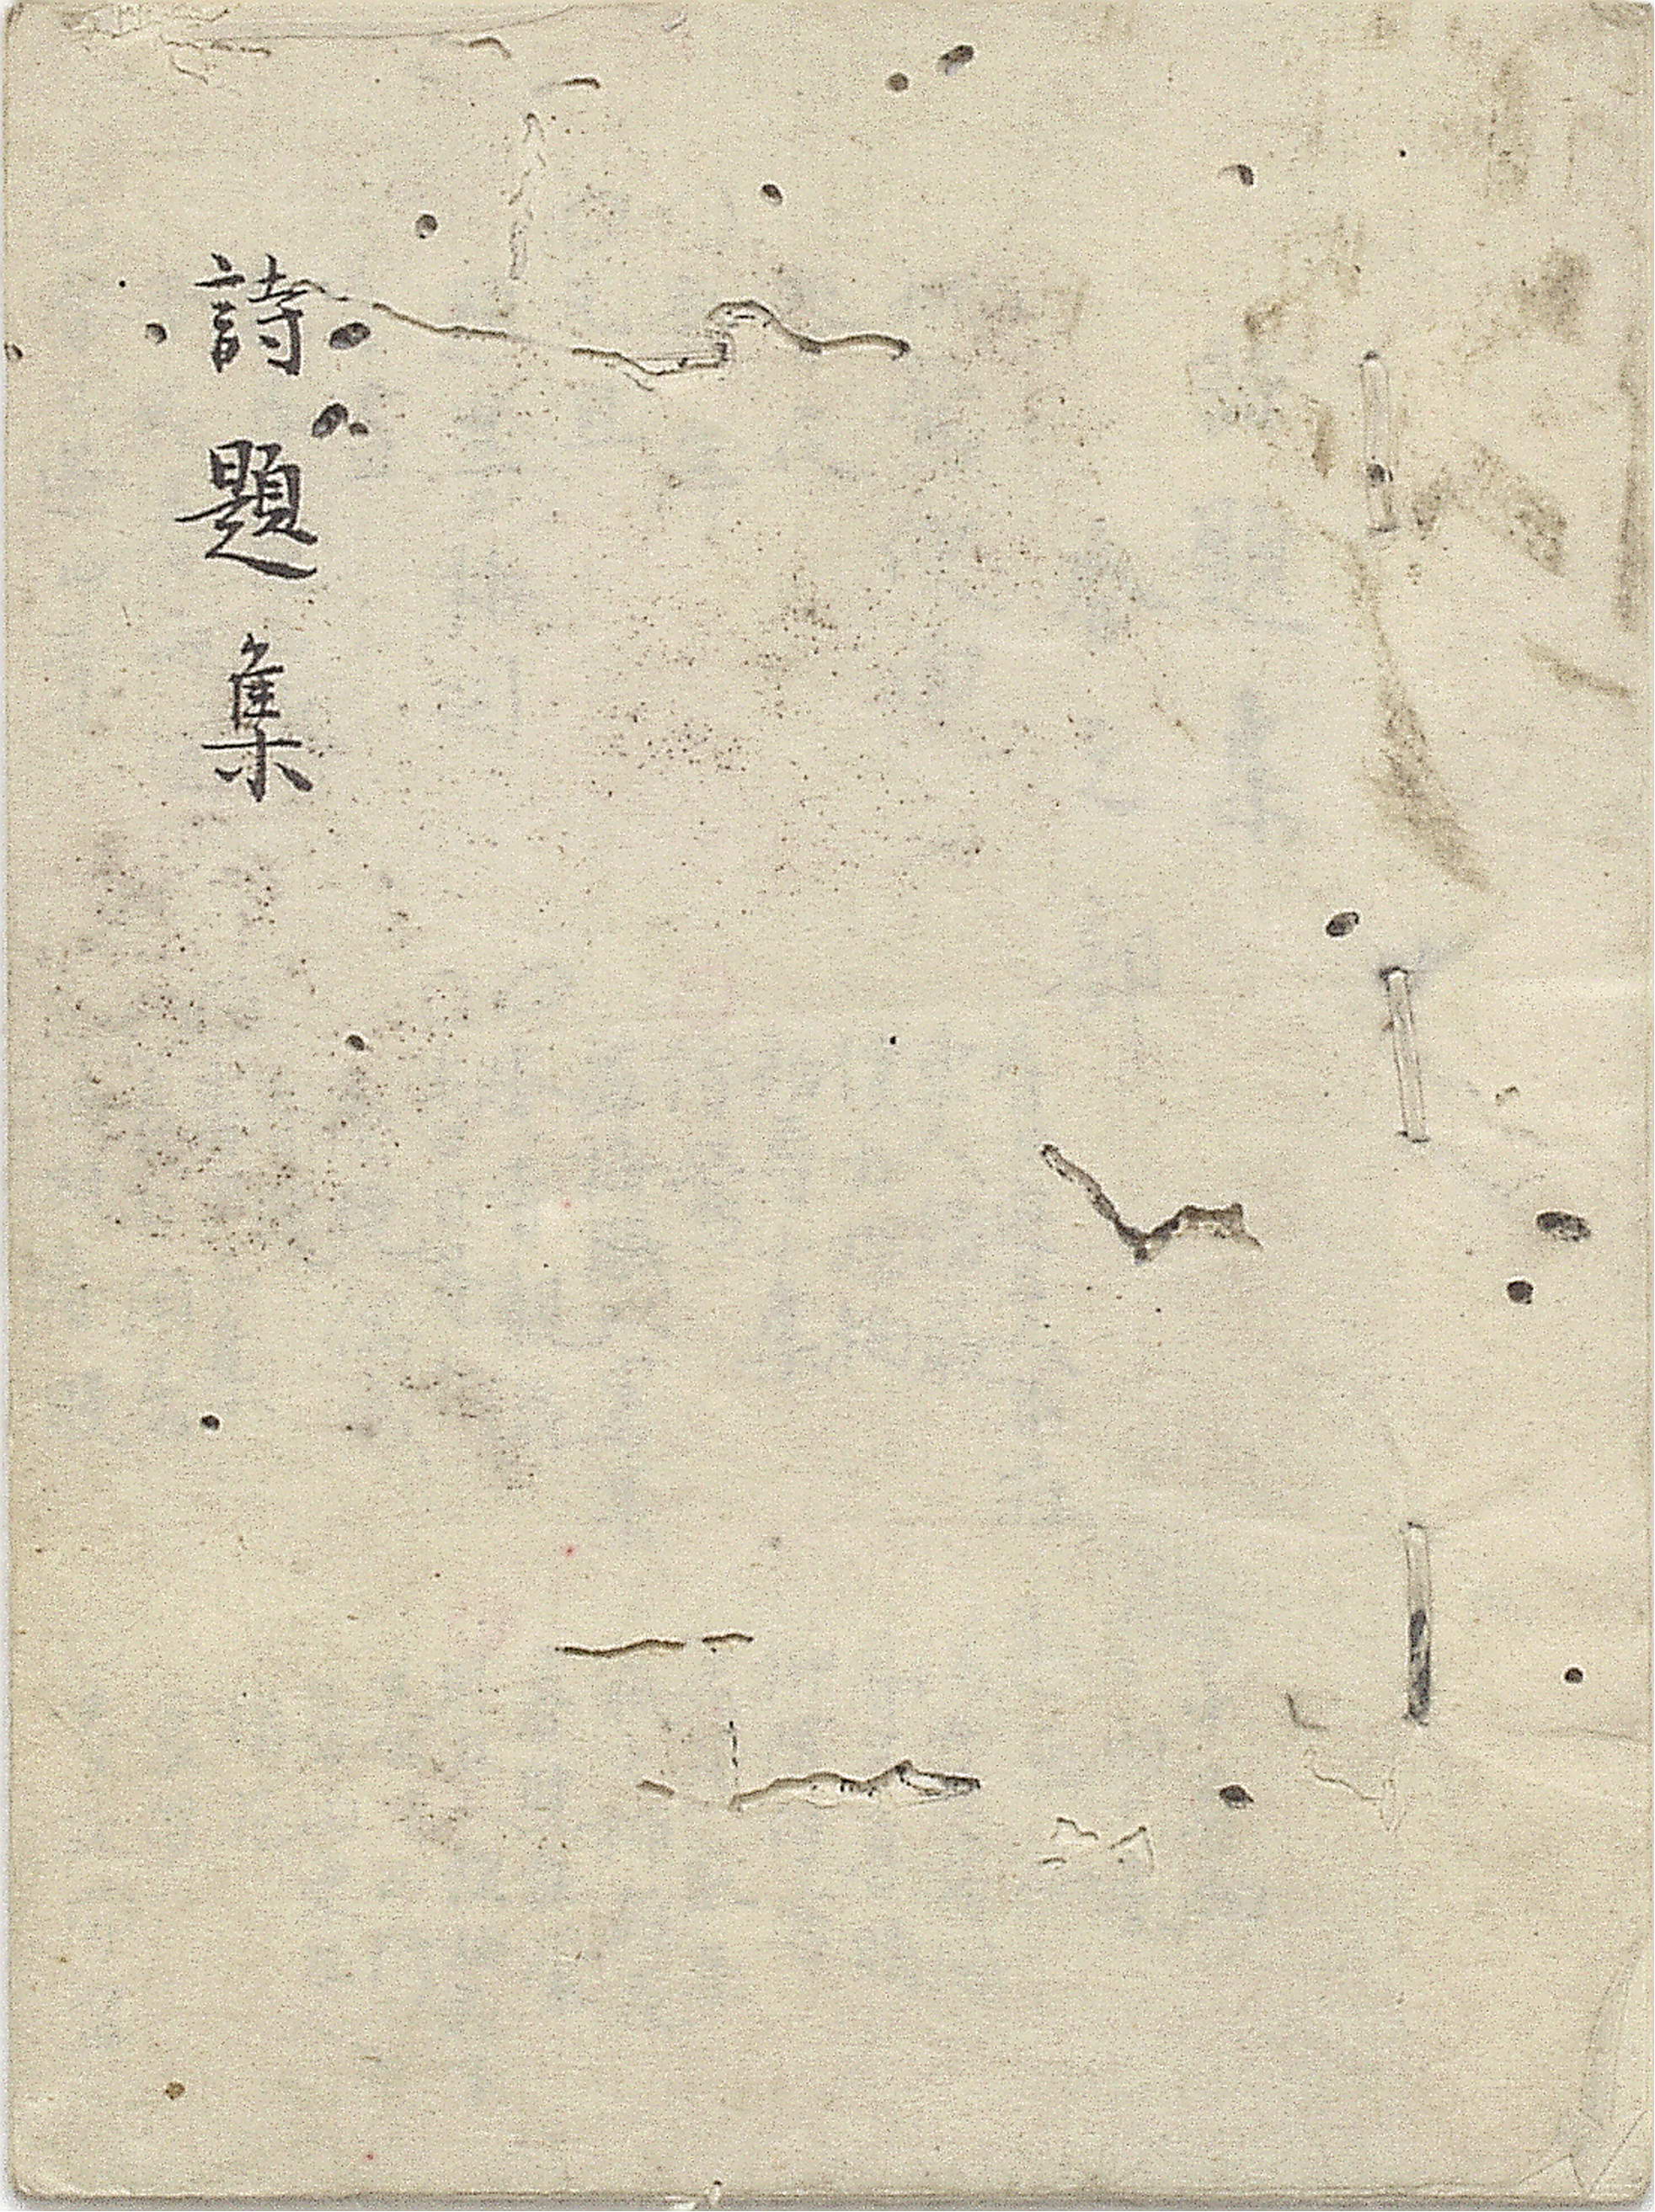 詩題集